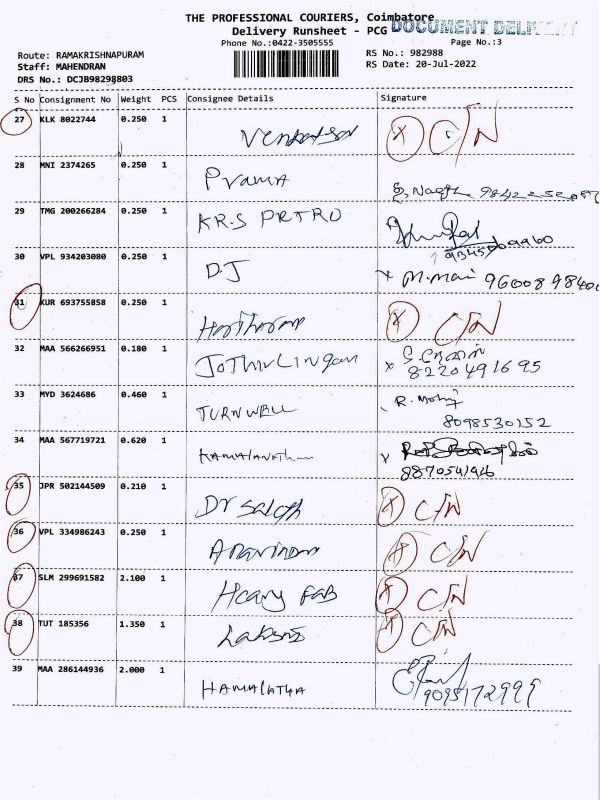 THE PROFESSIONAL COURIERS, Coimbatore
Delivery Runsheet - PCG
DOCUMENT DELIVERY
Phone No.:0422-3505555
Page No.:3
Route: RAMAKRISHNAPURAM
RS No.: 982988
Staff: MAHENDRAN
RS Date: 20-Jul-2022
DRS No.: DCJB98298803
S No Consignment No Weight PCS Consignee Details Signature
27 KLK 8022744 0.250 1 X C/N
28 MNI 2374265 0.250 1 Prama
29 TMG 200266284 0.250 1 KRS PRTRO
30 VPL 934203080 0.250 1 D.J X M.mani
31 KUR 693755858 0.250 1 X C/N
32 MAA 566266951 0.180 1 JOTHIVLINGam X 8220491695
33 MYD 3624686 0.460 1 TURNWELL R. Mohij 8098530152
34 MAA 567719721 0.620 1 KAMALANATHan
35 JPR 502144509 0.210 1 Dr X C/N
36 VPL 334986243 0.250 1 Aravindan X C/N
37 SLM 299691582 2.100 1 Heavy FAB X C/N
38 TUT 185356 1.350 1 X C/N
39 MAA 286144936 2.000 1 HAMALATHA 9095172999